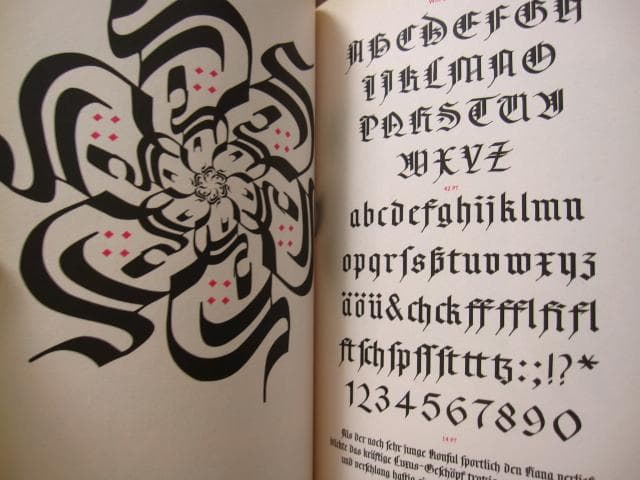 ABCDEFGH
IJKLMNO
PQRSTUV
WXYZ
42 PT
abcdefghijklmn
opqrſsßtuvwxyz
äöü&chckfffflfifl
ftſchſpſſſttttz:;!?*
1234567890
14 PT
Als der noch ſehr junge Konſul ſportlich den
das kräftige Luxus-Geſchöpf
und verſchlang haſtig